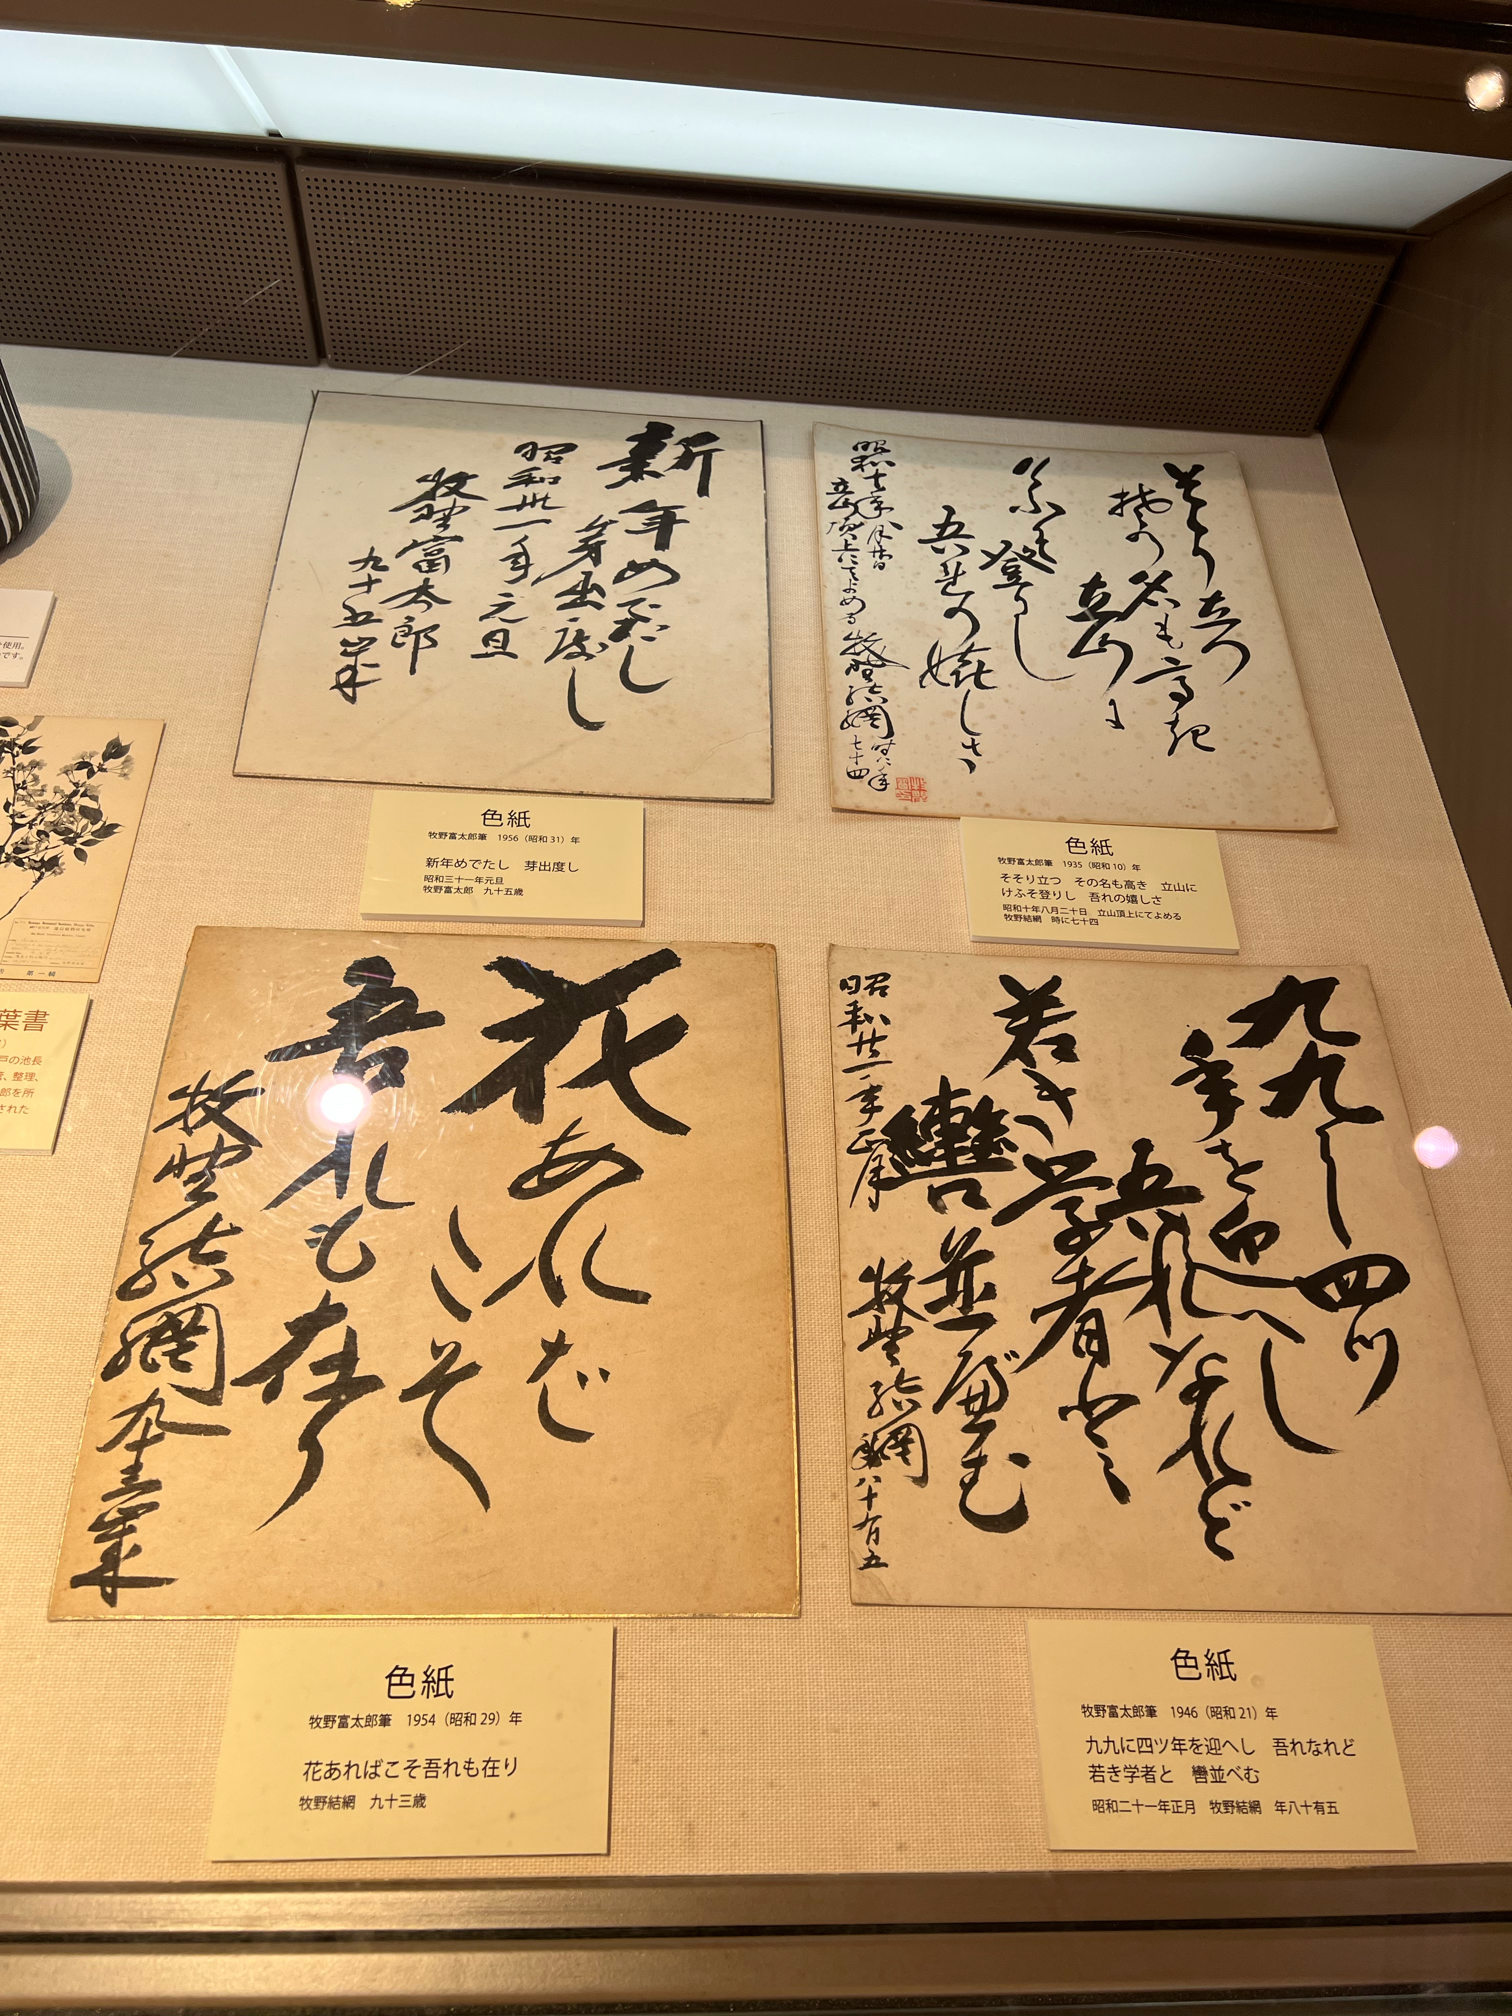 新年めでたし
芽出度し
昭和卅一年元旦
牧野富太郎
九十五歳
色紙
牧野富太郎筆　1956（昭和31）年
新年めでたし　芽出度し
昭和三十一年元旦
牧野富太郎　九十五歳
そそり立つ
其の名も高き
立山に
登りし
吾れの嬉しさ
牧野結網
七十四
色紙
牧野富太郎筆　1935（昭和10）年
そそり立つ　その名も高き　立山に
けふそ登りし　吾れの嬉しさ
昭和十年八月二十日　立山頂上にてよめる
牧野結網　時に七十四
花あれば
こそ
吾れも在り
牧野結網　九十三歳
色紙
牧野富太郎筆　1954（昭和29）年
花あればこそ吾れも在り
牧野結網　九十三歳
九九に四ツ
年を迎へし
吾れなれど
若き学者と
轡並べむ
昭和廿一年正月　牧野結網　年八十有五
色紙
牧野富太郎筆　1946（昭和21）年
九九に四ツ年を迎へし　吾れなれど
若き学者と　轡並べむ
昭和二十一年正月　牧野結網　年八十有五
使用。
です。
第一輯
葉書
戸の池長
整理、
郎を所
された